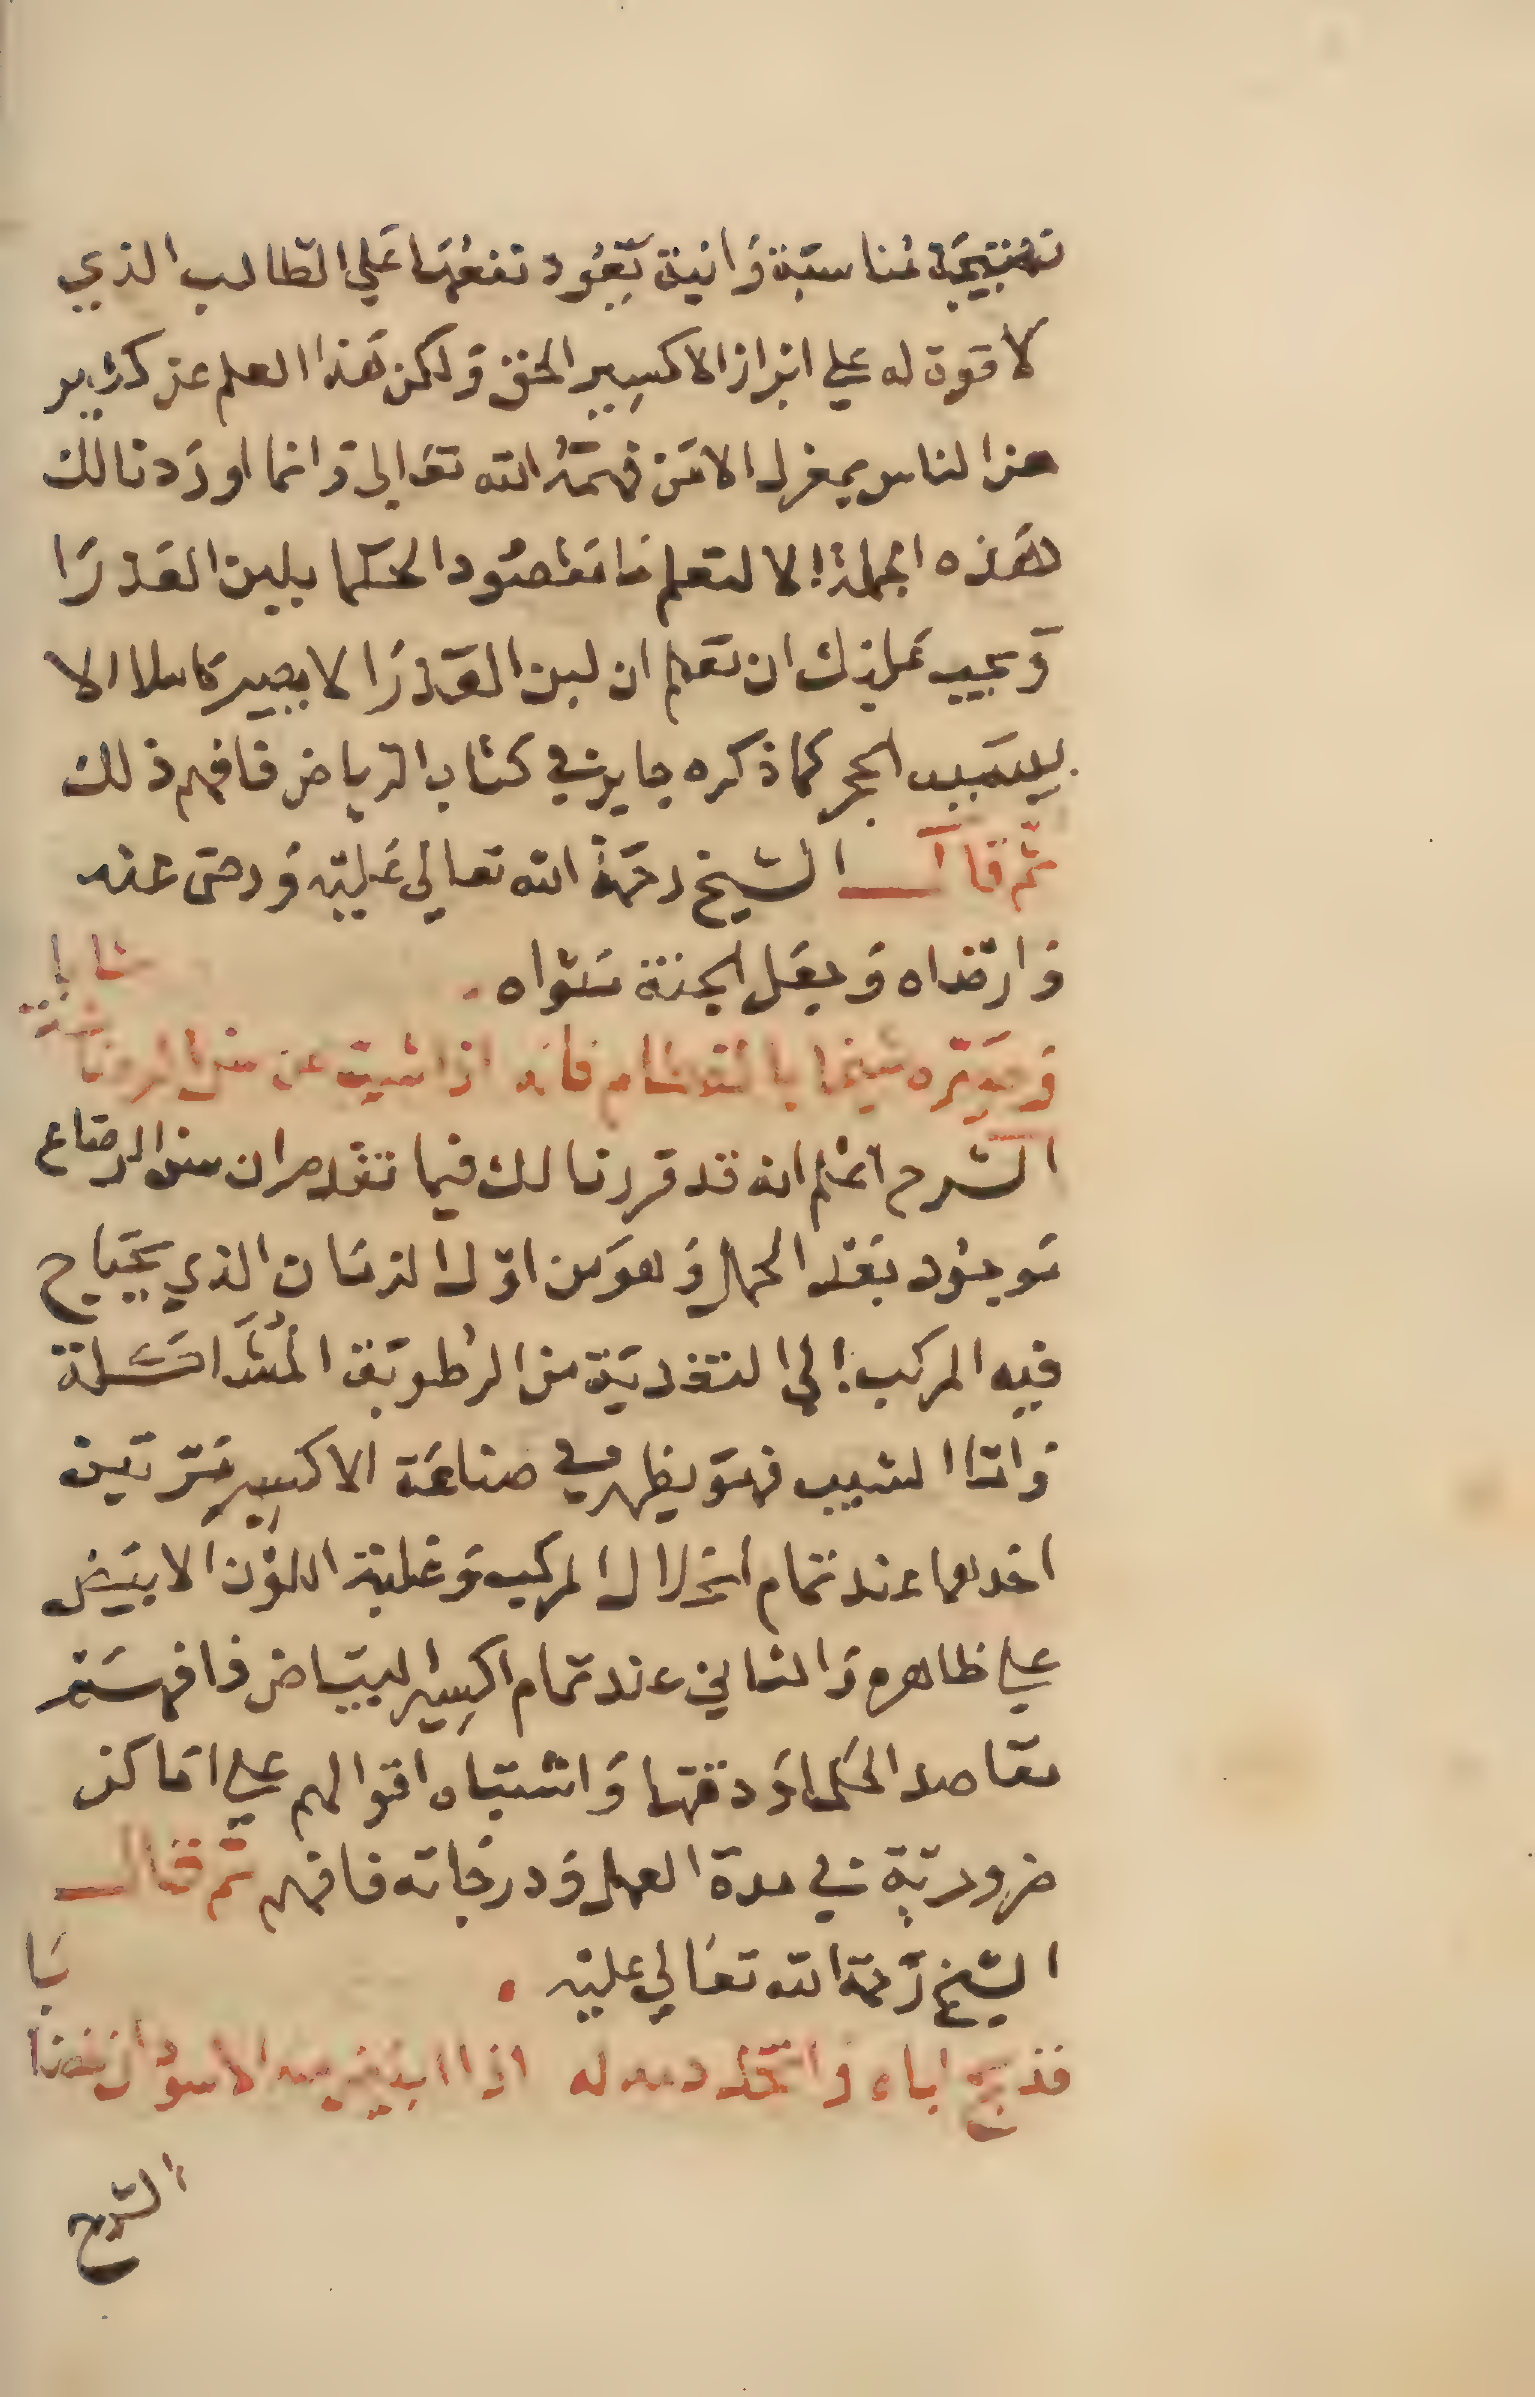 نتيجة مناسبة وانية يعود نفعها علي الطالب الذي
لا قوة له علي ابراز الاكسير الحق ولكن هذا العلم عن كثير
من الناس بمعزل الا من فهمه الله تعالي وانما اوردنا لك
هذه الجملة الا لتعلم ما مقصود الحكما بلبن العذرا
ويجب عليك ان تعلم ان لبن العذرا لا يصير كاملا الا
بسبب الحجر كما ذكره جابر في كتاب الرياض فافهم ذلك
ثم قال الشيخ رحمة الله تعالي عليه ورضي عنه
وارضاه وجعل الجنة مثواه
وصيره شيخا بالفطام فانه اذا شيب عن سن الرضاع
الشرح اعلم انه قد قررنا لك فيما تقدم ان سن الرضاع
موجود بعد الحمل وهو من اول الزمان الذي يحتاج
فيه المركب الي التغذية من الرطوبة المشاكلة
واما الشيب فهو يظهر في صناعة الاكسير مرتين
احدهما عند تمام انحلال المركب وغلبة اللون الابيض
علي ظاهره والثاني عند تمام اكسير البياض فافهم
مقاصد الحكما ودقتها واشتباه اقوالهم علي اماكن
ضرورية في مدة العمل ودرجاته فافهم ثم قال
الشيخ رحمة الله تعالي عليه
فذبح اباه واتخذ دمه له اذا ابيض منه الاسودان
الشرح